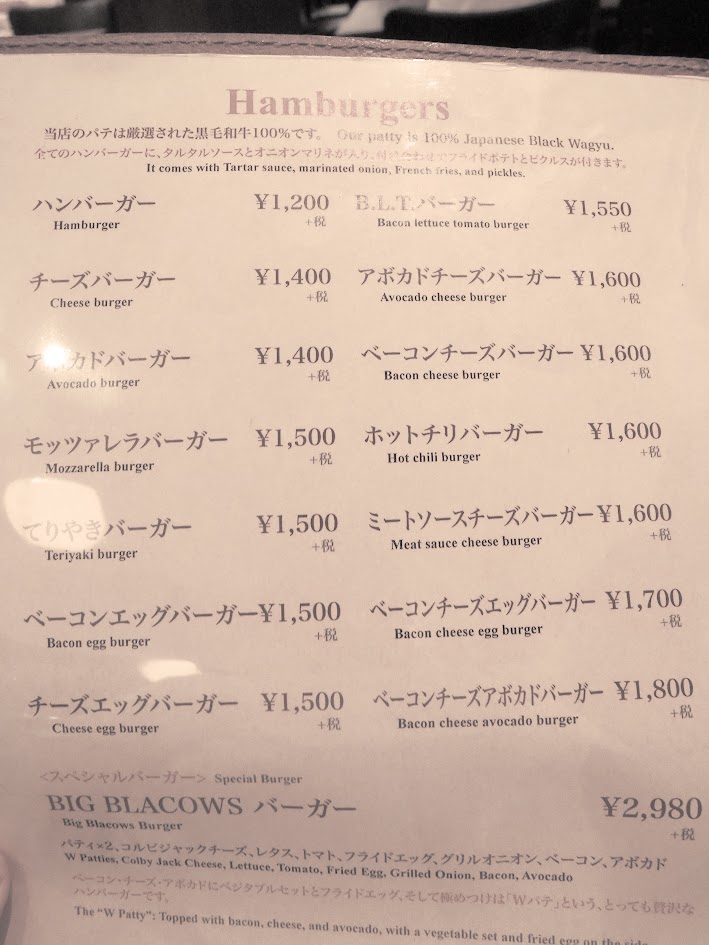 Hamburgers
当店のパテは厳選された黒毛和牛100%です。 Our patty is 100% Japanese Black Wagyu.
全てのハンバーガーに、タルタルソースとオニオンマリネが入り、付け合わせでフライドポテトとピクルスが付きます。
It comes with Tartar sauce, marinated onion, French fries, and pickles.
ハンバーガー ¥1,200
Hamburger +税
B.L.T.バーガー ¥1,550
Bacon lettuce tomato burger +税
チーズバーガー ¥1,400
Cheese burger +税
アボカドチーズバーガー ¥1,600
Avocado cheese burger +税
アボカドバーガー ¥1,400
Avocado burger +税
ベーコンチーズバーガー ¥1,600
Bacon cheese burger +税
モッツァレラバーガー ¥1,500
Mozzarella burger +税
ホットチリバーガー ¥1,600
Hot chili burger +税
てりやきバーガー ¥1,500
Teriyaki burger +税
ミートソースチーズバーガー ¥1,600
Meat sauce cheese burger +税
ベーコンエッグバーガー ¥1,500
Bacon egg burger +税
ベーコンチーズエッグバーガー ¥1,700
Bacon cheese egg burger +税
チーズエッグバーガー ¥1,500
Cheese egg burger +税
ベーコンチーズアボカドバーガー ¥1,800
Bacon cheese avocado burger +税
<スペシャルバーガー> Special Burger
BIG BLACOWS バーガー ¥2,980
Big Blacows Burger +税
パティ×2、コルビジャックチーズ、レタス、トマト、フライドエッグ、グリルオニオン、ベーコン、アボカド
W Patties, Colby Jack Cheese, Lettuce, Tomato, Fried Egg, Grilled Onion, Bacon, Avocado
ベーコン・チーズ・アボカドにベジタブルセットとフライドエッグ、そして極めつけは「Wパテ」という、とっても贅沢な
ハンバーガーです。
The "W Patty": Topped with bacon, cheese, and avocado, with a vegetable set and fried egg on the side